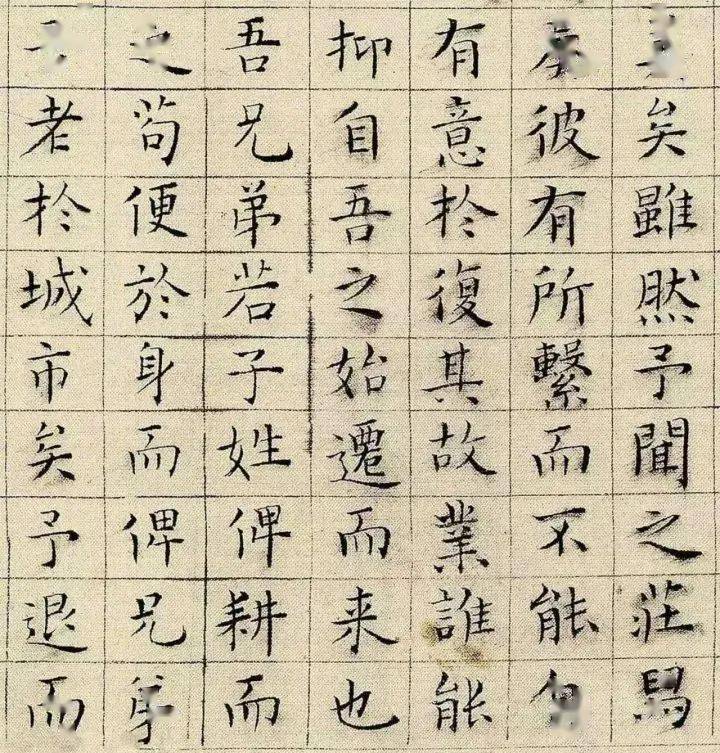 矣雖然予聞之莊舄
彼有所繫而不能
有意於復其故業誰能
抑自吾之始遷而来也
吾兄弟若子姓俾耕而
之苟便於身而俾兄弟
老於城市矣予退而